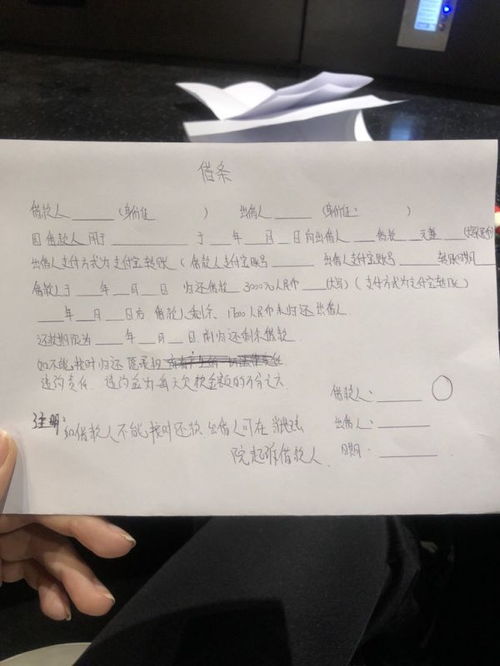 借条
借款人 ____ (身份证 ) 出借人 ____ (身份证: )
因借款人用于 ____ 于 __年__月__日向出借人 __借款 __元整
出借人支付方式为支付宝转账 ( 借款人支付宝账号 ____ 出借人支付宝账号 ____ 转账日期 __
借款人于 __年__月__日 归还借款 3000元人民币 __(大写) ( 支付方式为支付宝转账 )
__年__月__日为 借款人 1700人民币未归还出借人
还款期限为 __年__月__日前归还剩余借款
如不能按时归还
违约责任 违约金为每天欠款金额的万分之六
借款人: ____
出借人: ____
日期: ____
注明: 如借款人不能按时还款 出借人可在当地法
院起诉借款人.